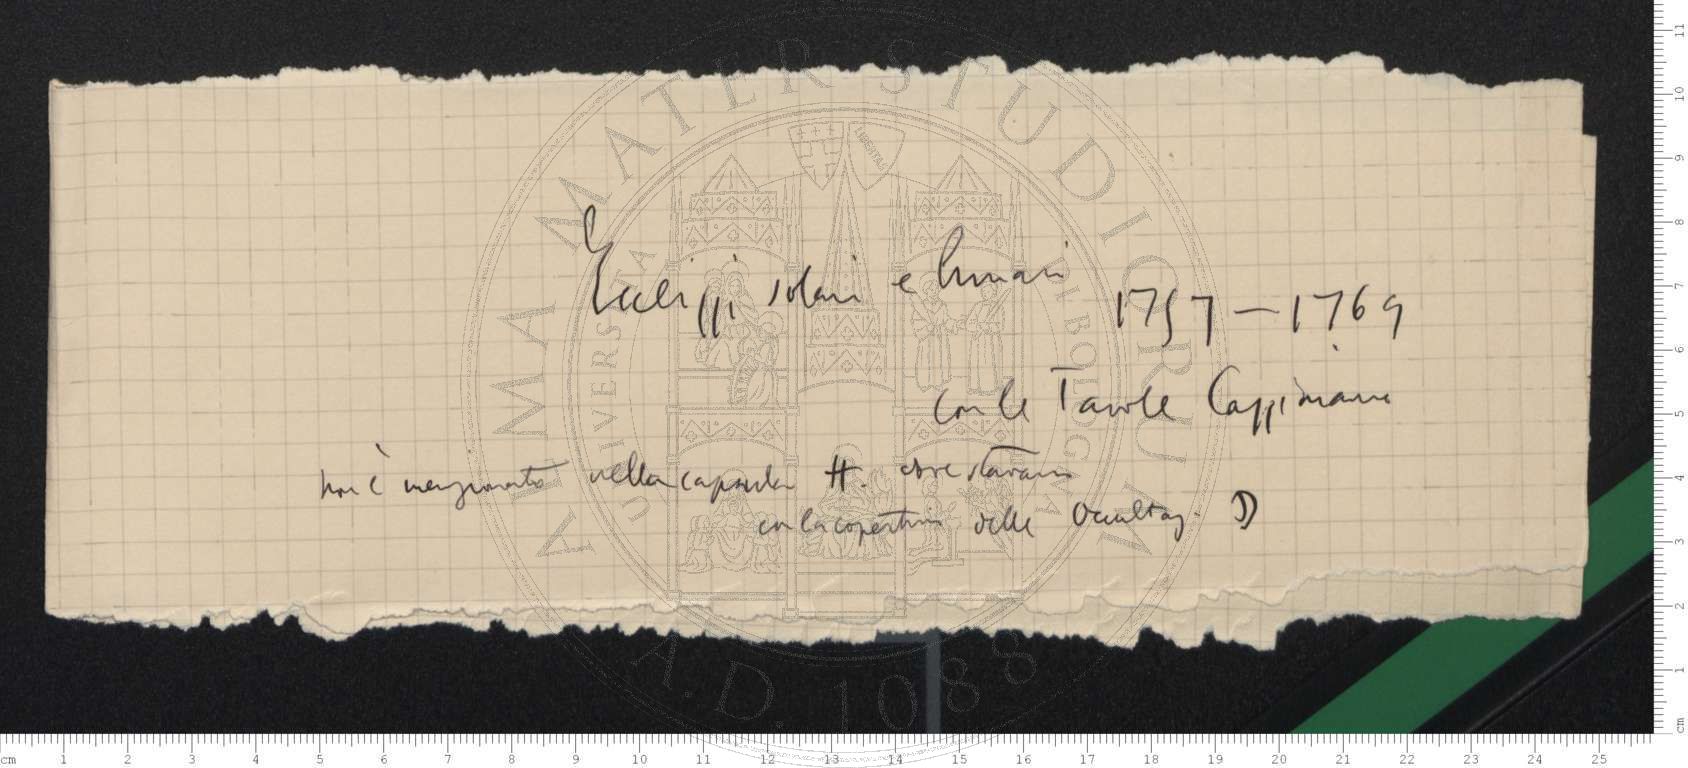 Ecclissi solari e lunari
1757 – 1769
con le Tavole Cassiniane
non è menzionato nella capsula H. dove stavano
con la copertina delle Occultaz. D
ALMA MATER STUDIORUM
UNIVERSITÀ DI BOLOGNA
A.D. 1088
LIBERTAS
cm 1 2 3 4 5 6 7 8 9 10 11 12 13 14 15 16 17 18 19 20 21 22 23 24 25
cm 1 2 3 4 5 6 7 8 9 10 11